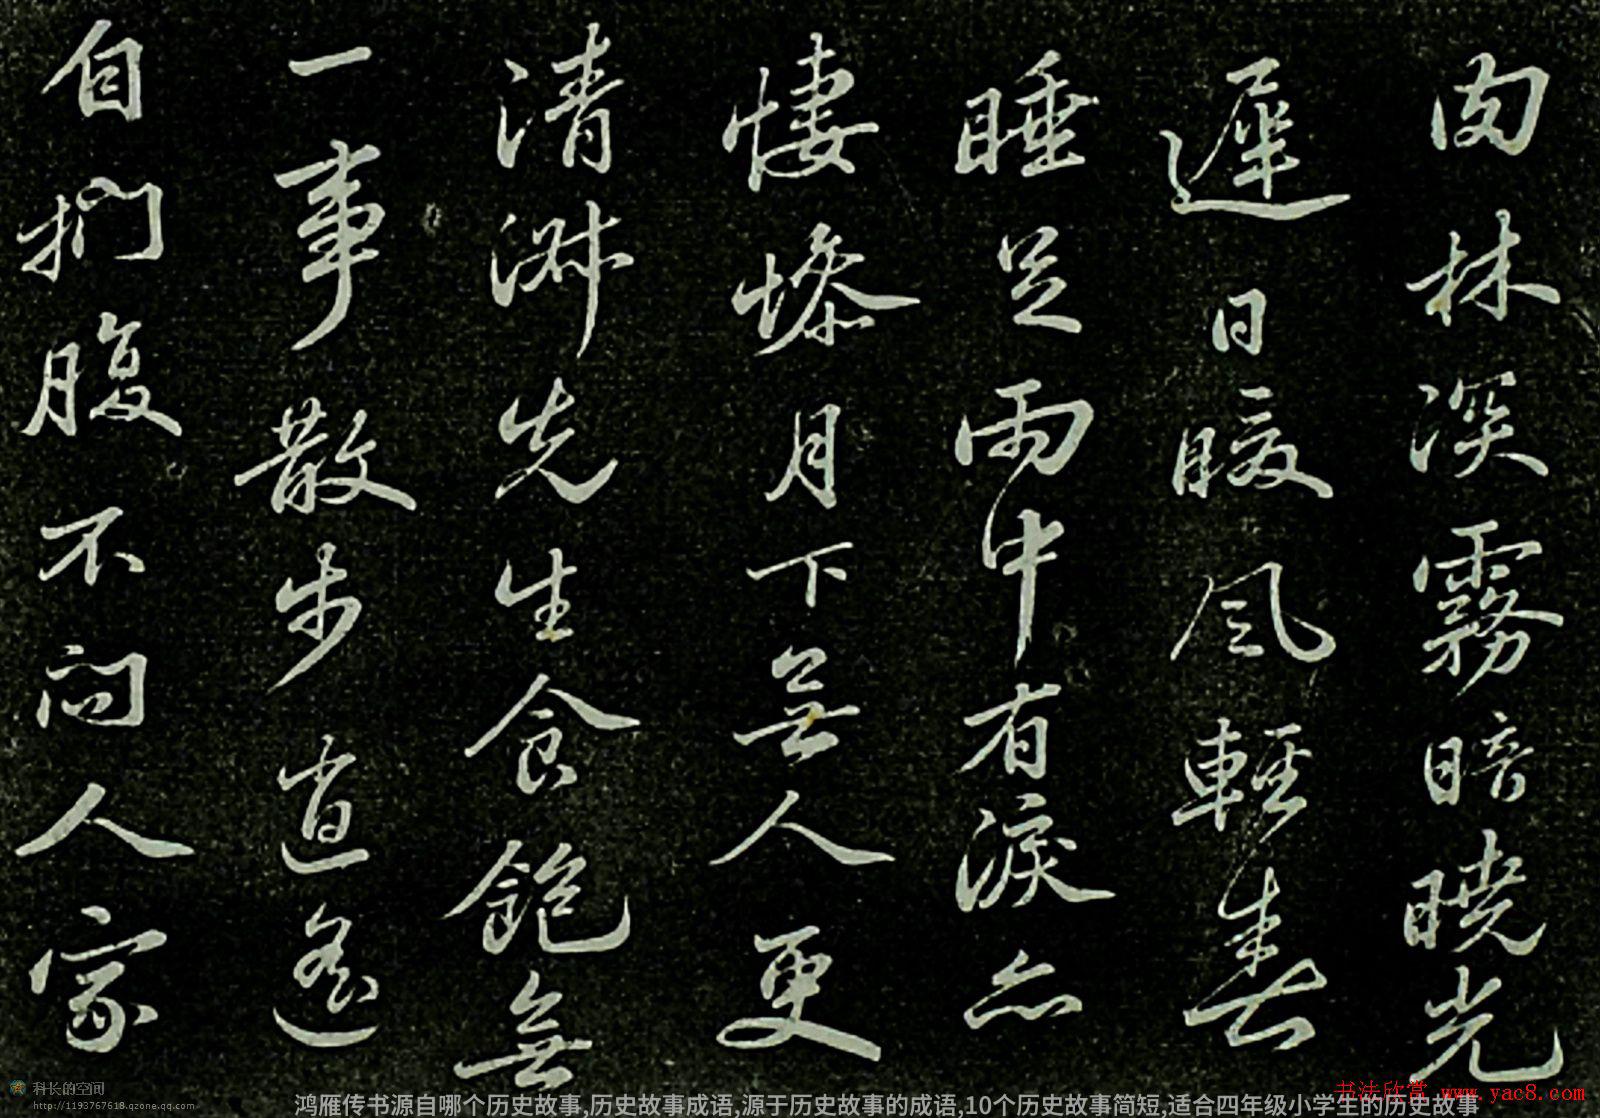 肉林深霧暗曉光
遲日暖風輕春
睡足雨中有淚亦
悽慘月下無人更
清淑先生食飽無
一事散步逍遙
自捫腹不問人家
科长的空间
http://1193767618.qzone.qq.com
书法欣赏 www.yac8.com
鸿雁传书源自哪个历史故事,历史故事成语,源于历史故事的成语,10个历史故事简短,适合四年级小学生的历史故事